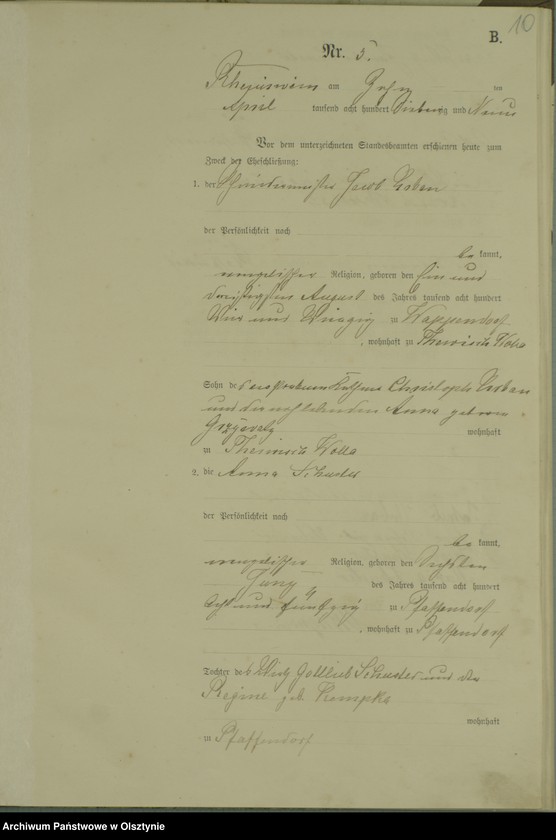 10
B.
Nr. 5.
Rheinswein am Zehn ten
April tausend acht hundert Siebenzig und Neun
Vor dem unterzeichneten Standesbeamten erschienen heute zum
Zweck der Eheschließung:
1. der Jacob Urban
der Persönlichkeit nach
be kannt,
evangelischer Religion, geboren den Ein und
dreißigsten August des Jahres tausend acht hundert
Vier und Vierzig zu Wappendorf
, wohnhaft zu Wolla
Sohn des verstorbenen Käthners Christoph Urban
und der noch lebenden Anna geborene
wohnhaft
zu Wolla
2. die Anna Schuster
der Persönlichkeit nach
be kannt,
evangelischer Religion, geboren den Sechsten
Juny des Jahres tausend acht hundert
Acht und fünfzig zu Pfaffendorf
, wohnhaft zu Pfaffendorf
Tochter des Wirth Gottlieb Schuster und der
Regine geb Kempka
wohnhaft
zu Pfaffendorf
Archiwum Państwowe w Olsztynie